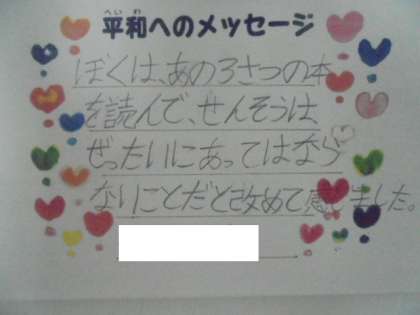 へいわ
平和へのメッセージ
ぼくは、あの3さつの本
を読んで、せんそうは
ぜったいにあってはなら
ないことだと改めて感じました。